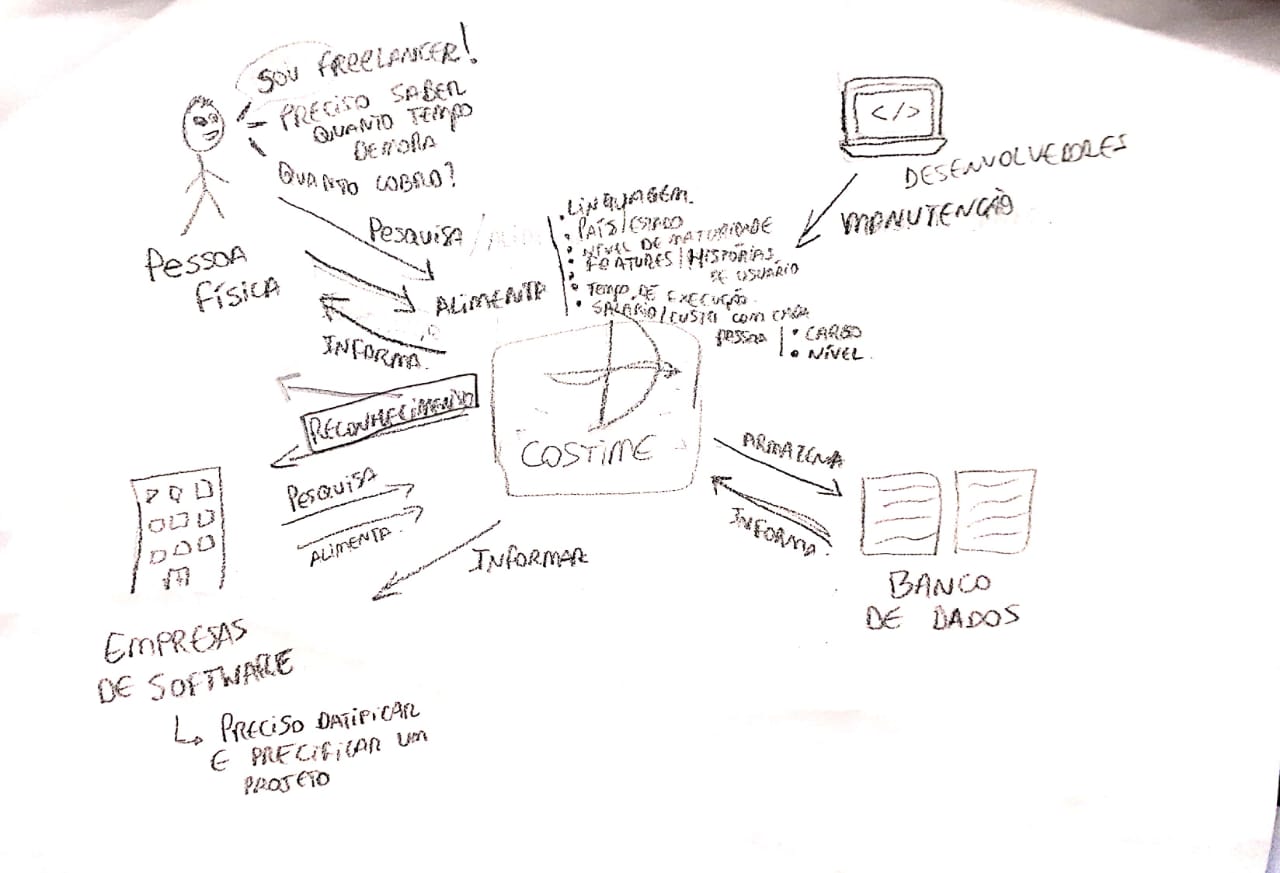 SOU FREELANCER!
PRECISO SABER
QUANTO TEMPO
DEMORA
QUANTO COBRO?
PESSOA
FÍSICA
</>
DESENVOLVEDORES
MANUTENÇÃO
PESQUISA/
ALIMENTA
• LINGUAGEM.
• PAÍS/ESTADO
• NÍVEL DE MATURIDADE
• FEATURES/HISTÓRIAS
DE USUÁRIO
• TEMPO DE EXECUÇÃO.
• SALÁRIO/CUSTO COM CADA
PESSOA
• CARGO
• NÍVEL.
INFORMA.
RECONHECIMENTO
COSTIME
ARMAZENA
INFORMA.
BANCO
DE DADOS
PESQUISA
ALIMENTA.
INFORMAR
EMPRESAS
DE SOFTWARE
PRECISO DATIFICAR
E PRECIFICAR UM
PROJETO